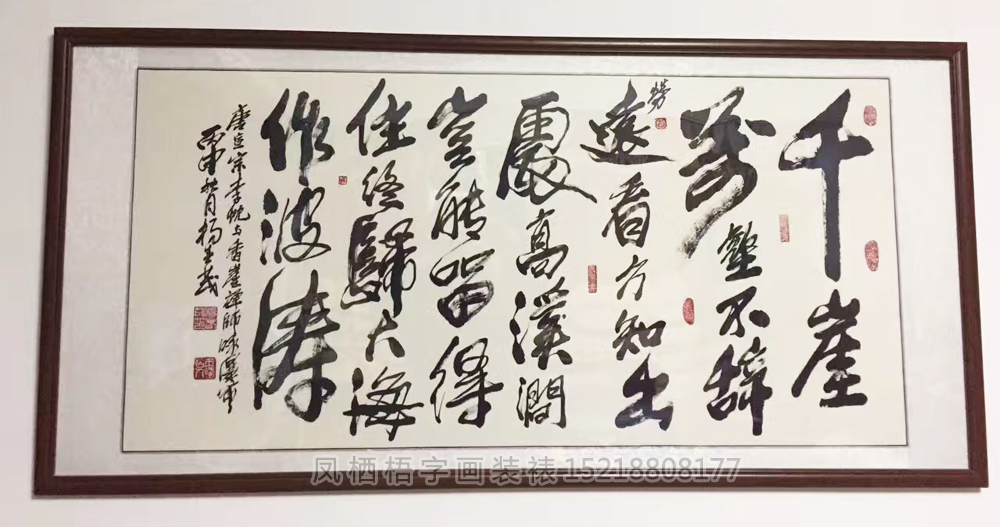 千崖
萬壑不辞
劳
遠看方知出
處高溪澗
豈能留得
住终歸大海
作波涛
唐宣宗李忱与香嚴禅师咏瀑布
丙申秋月杨
凤栖梧字画装裱15218808177